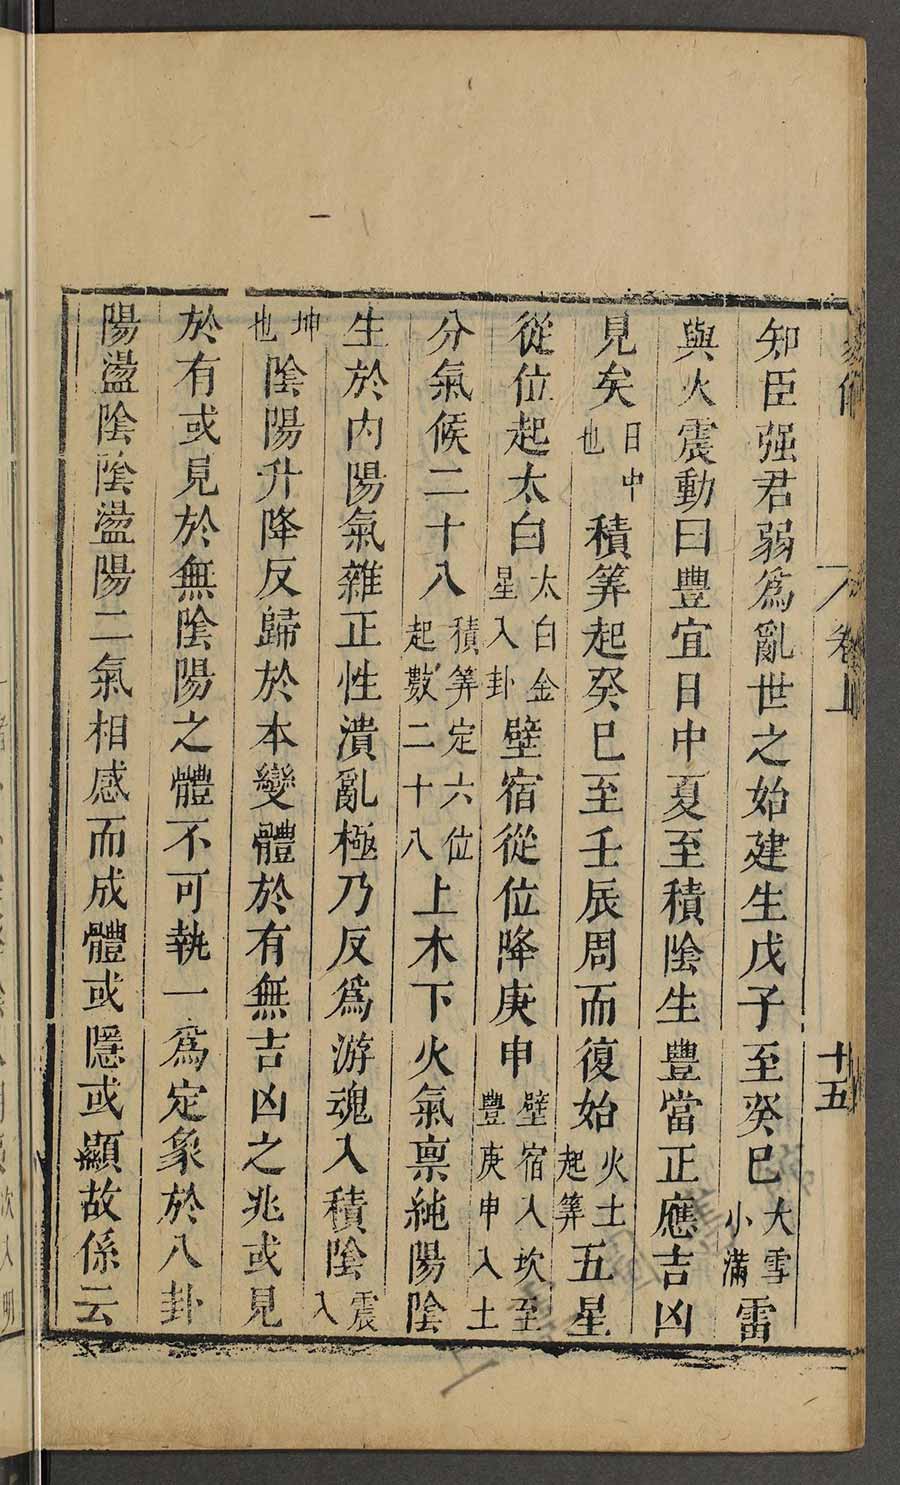 卷上
十五
知臣强君弱爲亂世之始建生戊子至癸巳大雪小滿雷
與火震動曰豐宜日中夏至積陰生豐當正應吉凶
見矣日中也積筭起癸巳至壬辰周而復始火土起筭五星
從位起太白太白金星入卦壁宿從位降庚申壁宿入坎至豐庚申入土
分氣候二十八積筭定六位起數二十八上木下火氣稟純陽陰
生於内陽氣雜正性潰亂極乃反爲游魂入積陰震入
坤也陰陽升降反歸於本變體於有無吉凶之兆或見
於有或見於無陰陽之體不可執一爲定象於八卦
陽盪陰陰盪陽二氣相感而成體或隱或顯故係云